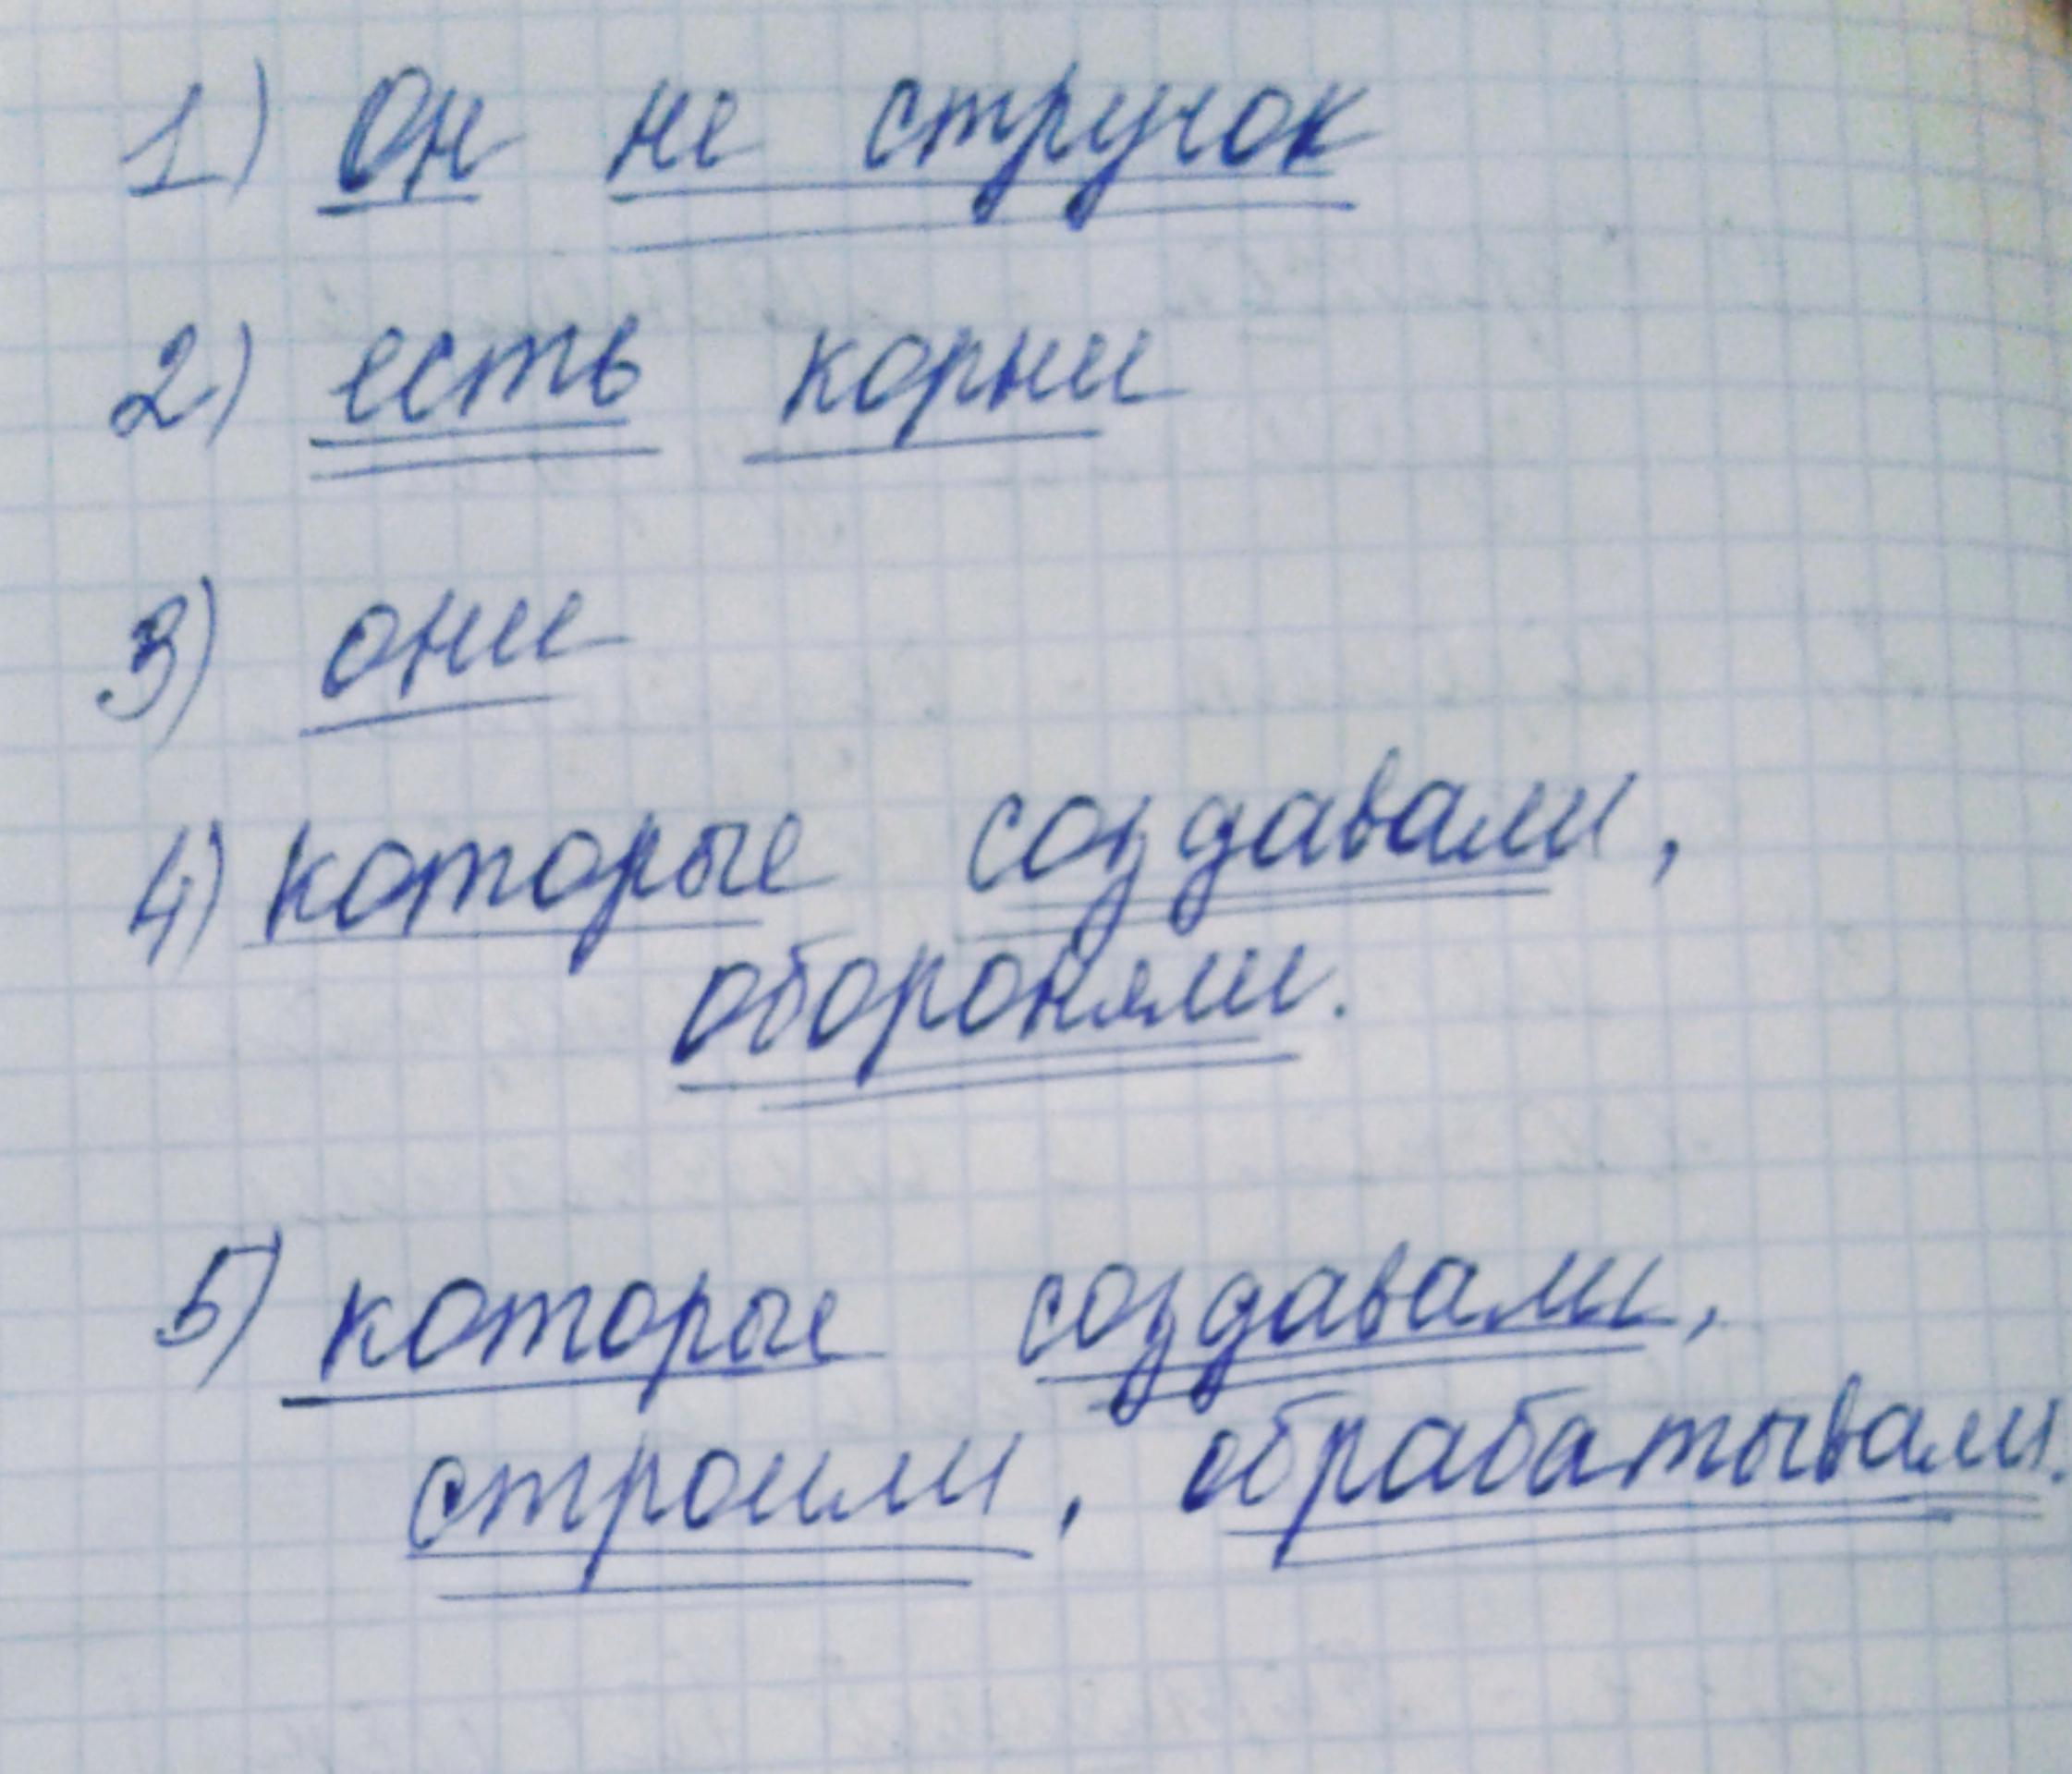 1) Он не стручок
2) есть корни
3) они
4) которые создавали,
обороняли.
5) которые создавали,
строили, обрабатывали.